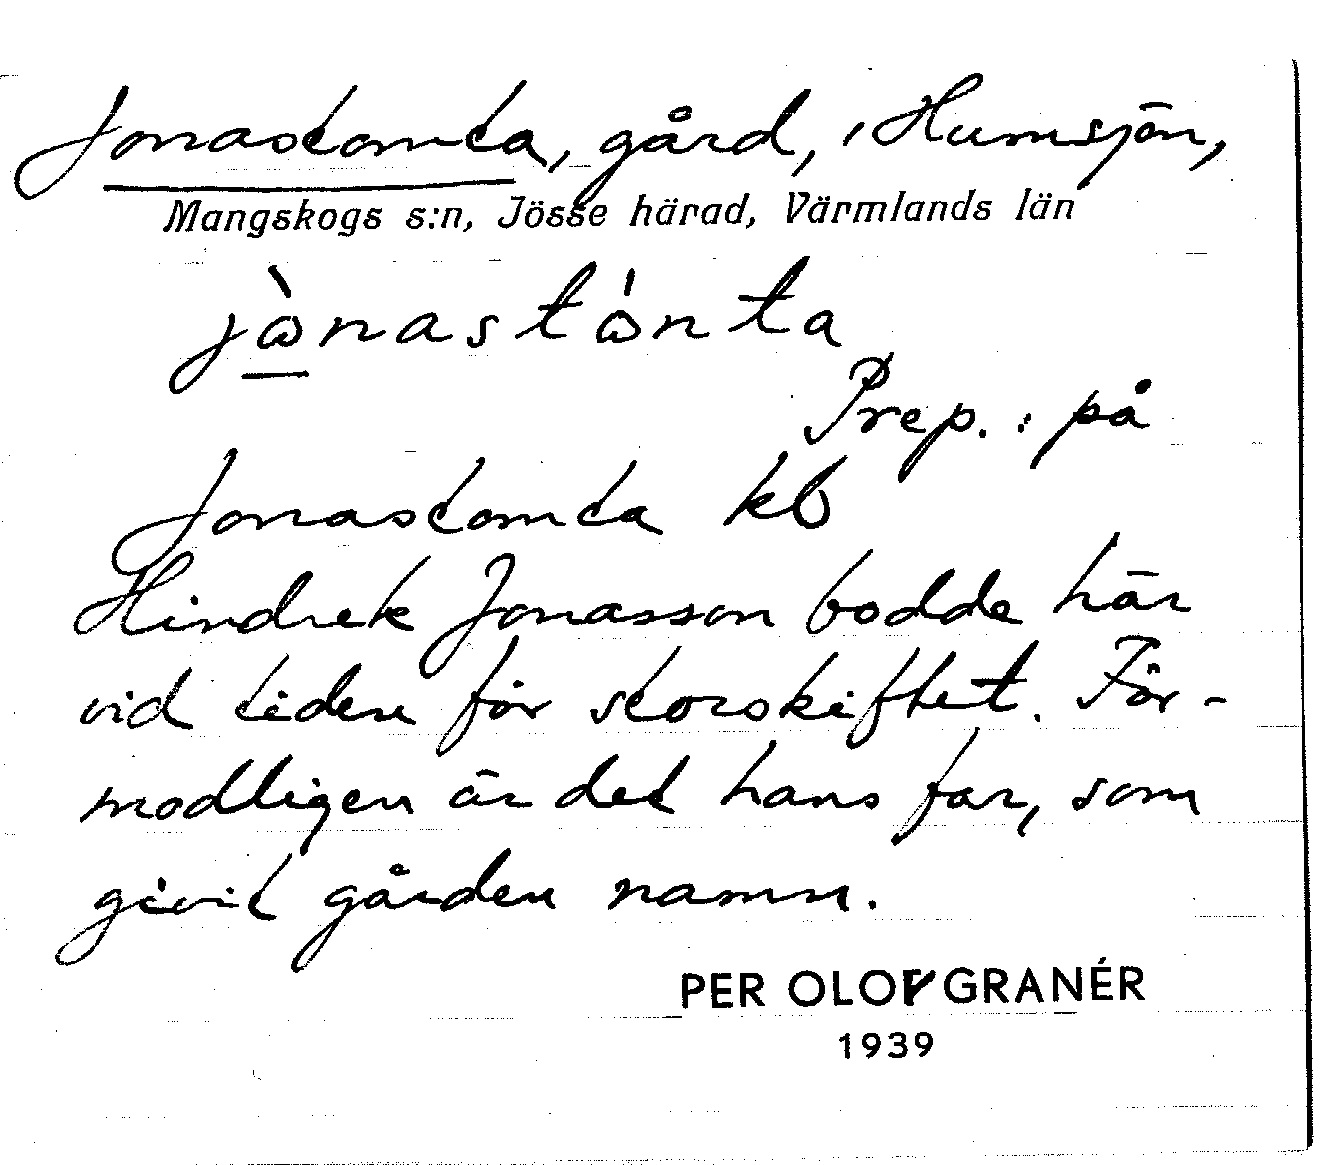 Jonastomta, gård, i Humsjön,
Mangskogs s:n, Jösse härad, Värmlands län
jὼnastώnta
Prep.: på
Jonastomta kb
Hindrek Jonasson bodde här
vid tiden för storskiftet. För-
modligen är det hans far, som
givit gården namn.
PER OLOV GRANÉR
1939